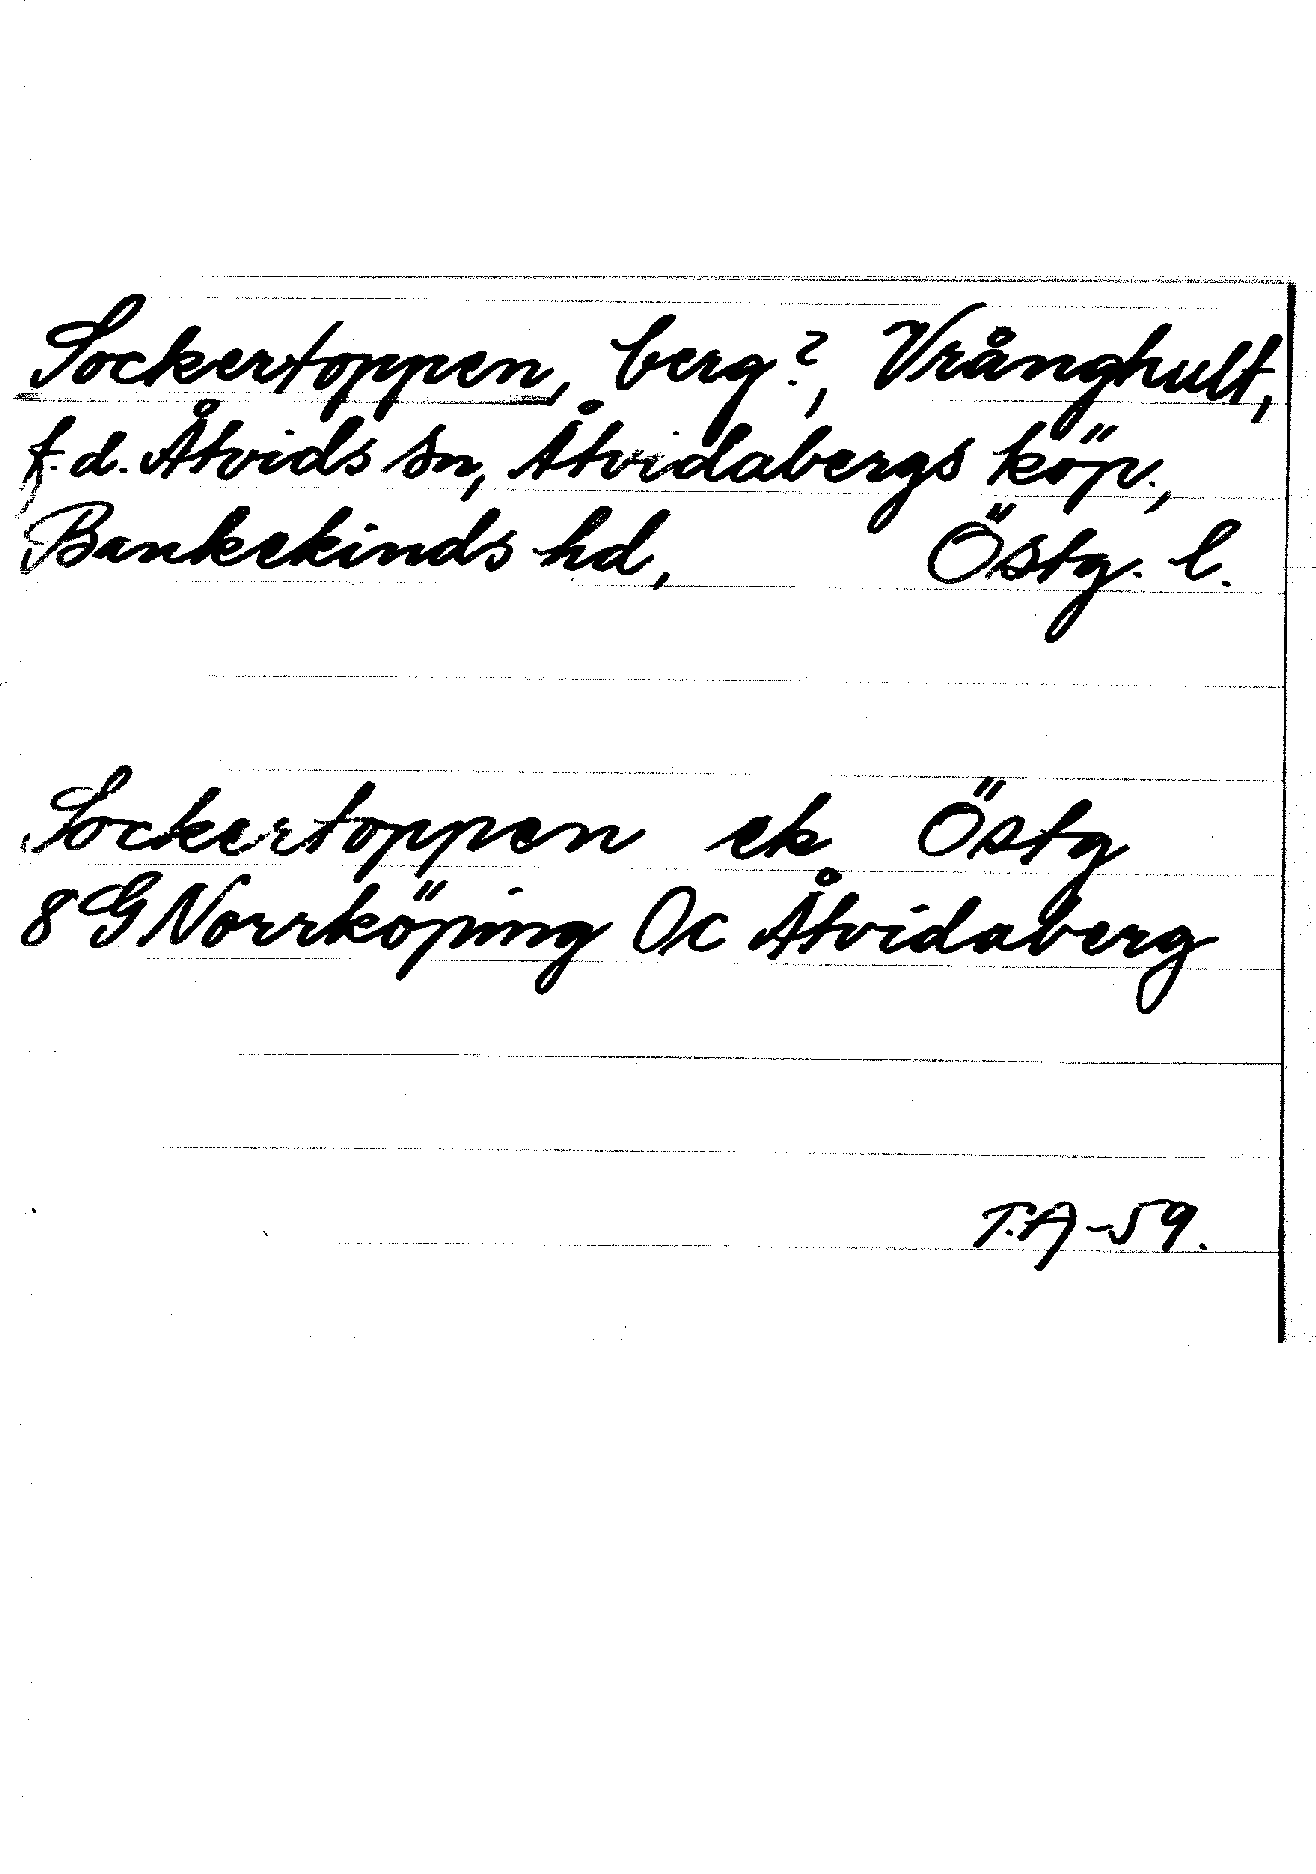 Sockertoppen, berg?, Vrånghult,
f.d. Åtvids sn, Åtvidabergs köp.,
Bankekinds hd, Östg. l.
Sockertoppen ek Östg
8G Norrköping 0c Åtvidaberg
T.A-59.